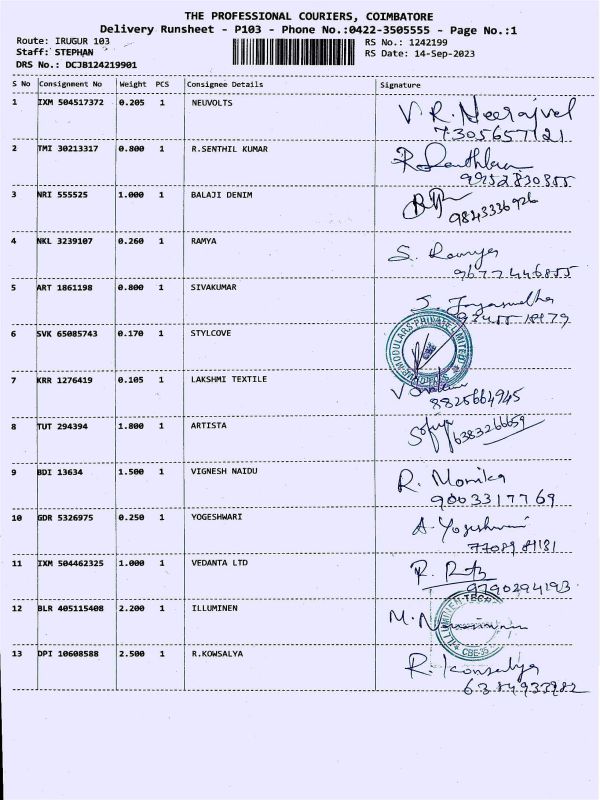 THE PROFESSIONAL COURIERS, COIMBATORE
Delivery Runsheet - P103 - Phone No.:0422-3505555 - Page No.:1
Route: IRUGUR 103 RS No.: 1242199
Staff: STEPHAN RS Date: 14-Sep-2023
DRS No.: DCJB124219901
S No Consignment No Weight PCS Consignee Details Signature
1 IXM 504517372 0.205 1 NEUVOLTS V.R. Neerajvel
7305657121
2 TMI 30213317 0.800 1 R.SENTHIL KUMAR
9952830355
3 NRI 555525 1.000 1 BALAJI DENIM
9843336926
4 NKL 3239107 0.260 1 RAMYA S. Ramya
9677446855
5 ART 1861198 0.800 1 SIVAKUMAR S. Jayasudha
6 SVK 65085743 0.170 1 STYLCOVE
MODULARS PRIVATE LIMITED
7 KRR 1276419 0.105 1 LAKSHMI TEXTILE
8825664945
8 TUT 294394 1.800 1 ARTISTA Sofiya
6383266659
9 BDI 13634 1.500 1 VIGNESH NAIDU R. Monika
9003317769
10 GDR 5326975 0.250 1 YOGESHWARI A. Yogeshwari
11 IXM 504462325 1.000 1 VEDANTA LTD R.
9790294193
12 BLR 405115408 2.200 1 ILLUMINEN M.
ILLUMINEN TECH
CBE-35
13 DPI 10608588 2.500 1 R.KOWSALYA R. Kowsalya
6384933982